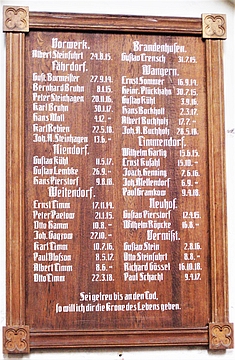 Vorwerk.
Albert Steinfuhrt 24.8.15.
Fährdorf.
Gust. Burmeister 27.9.14.
Bernhard Bruhn 8.1.15.
Peter Steinhagen 20.11.16.
Karl Bruhn 30.1.17.
Hans Woll 4.12. -
Karl Rebien 22.5.18.
Joh. A. Steinhagen 13.6. -
Niendorf.
Gustav Kühl 10.5.17.
Gustav Lembke 26.9. -
Hans Pierstorf 9.8.18.
Weitendorf.
Ernst Timm 17.11.14.
Peter Paetow 21.1.15.
Otto Hamm 10.8. -
Joh. 27.10. -
Karl Timm 10.7.16.
Paul 8.5.17.
Albert Timm 8.6. -
Otto Timm 22.3.18.
Brandenhusen.
Gustav 31.7.15.
Wangern.
Ernst Sommer 16.9.14.
Heinr. Plückhahn 30.7.15.
Gustav Kühl 3.9.16.
Hans Buchholz 2.3.17.
Albert Buchholz 12.7. -
Joh. A. Buchholz 28.5.18.
Timmendorf.
Wilhelm Hartig 15.6.15.
Ernst 15.11. -
Joach. Gening 7.6.16.
Joh. Wellendorf 6.9. -
Paul 9.4.18.
Neuhof.
Gustav Pierstorf 12.4.15.
Wilhelm Röpcke 16.8. -
Vermißt.
Gustav Stein 2.8.16.
Otto Steinfuhrt 8.8. -
Richard Gössel 16.10.18.
Paul Schacht 9.4.17.
Sei getreu bis an den Tod,
so will ich dir die Krone des Lebens geben.